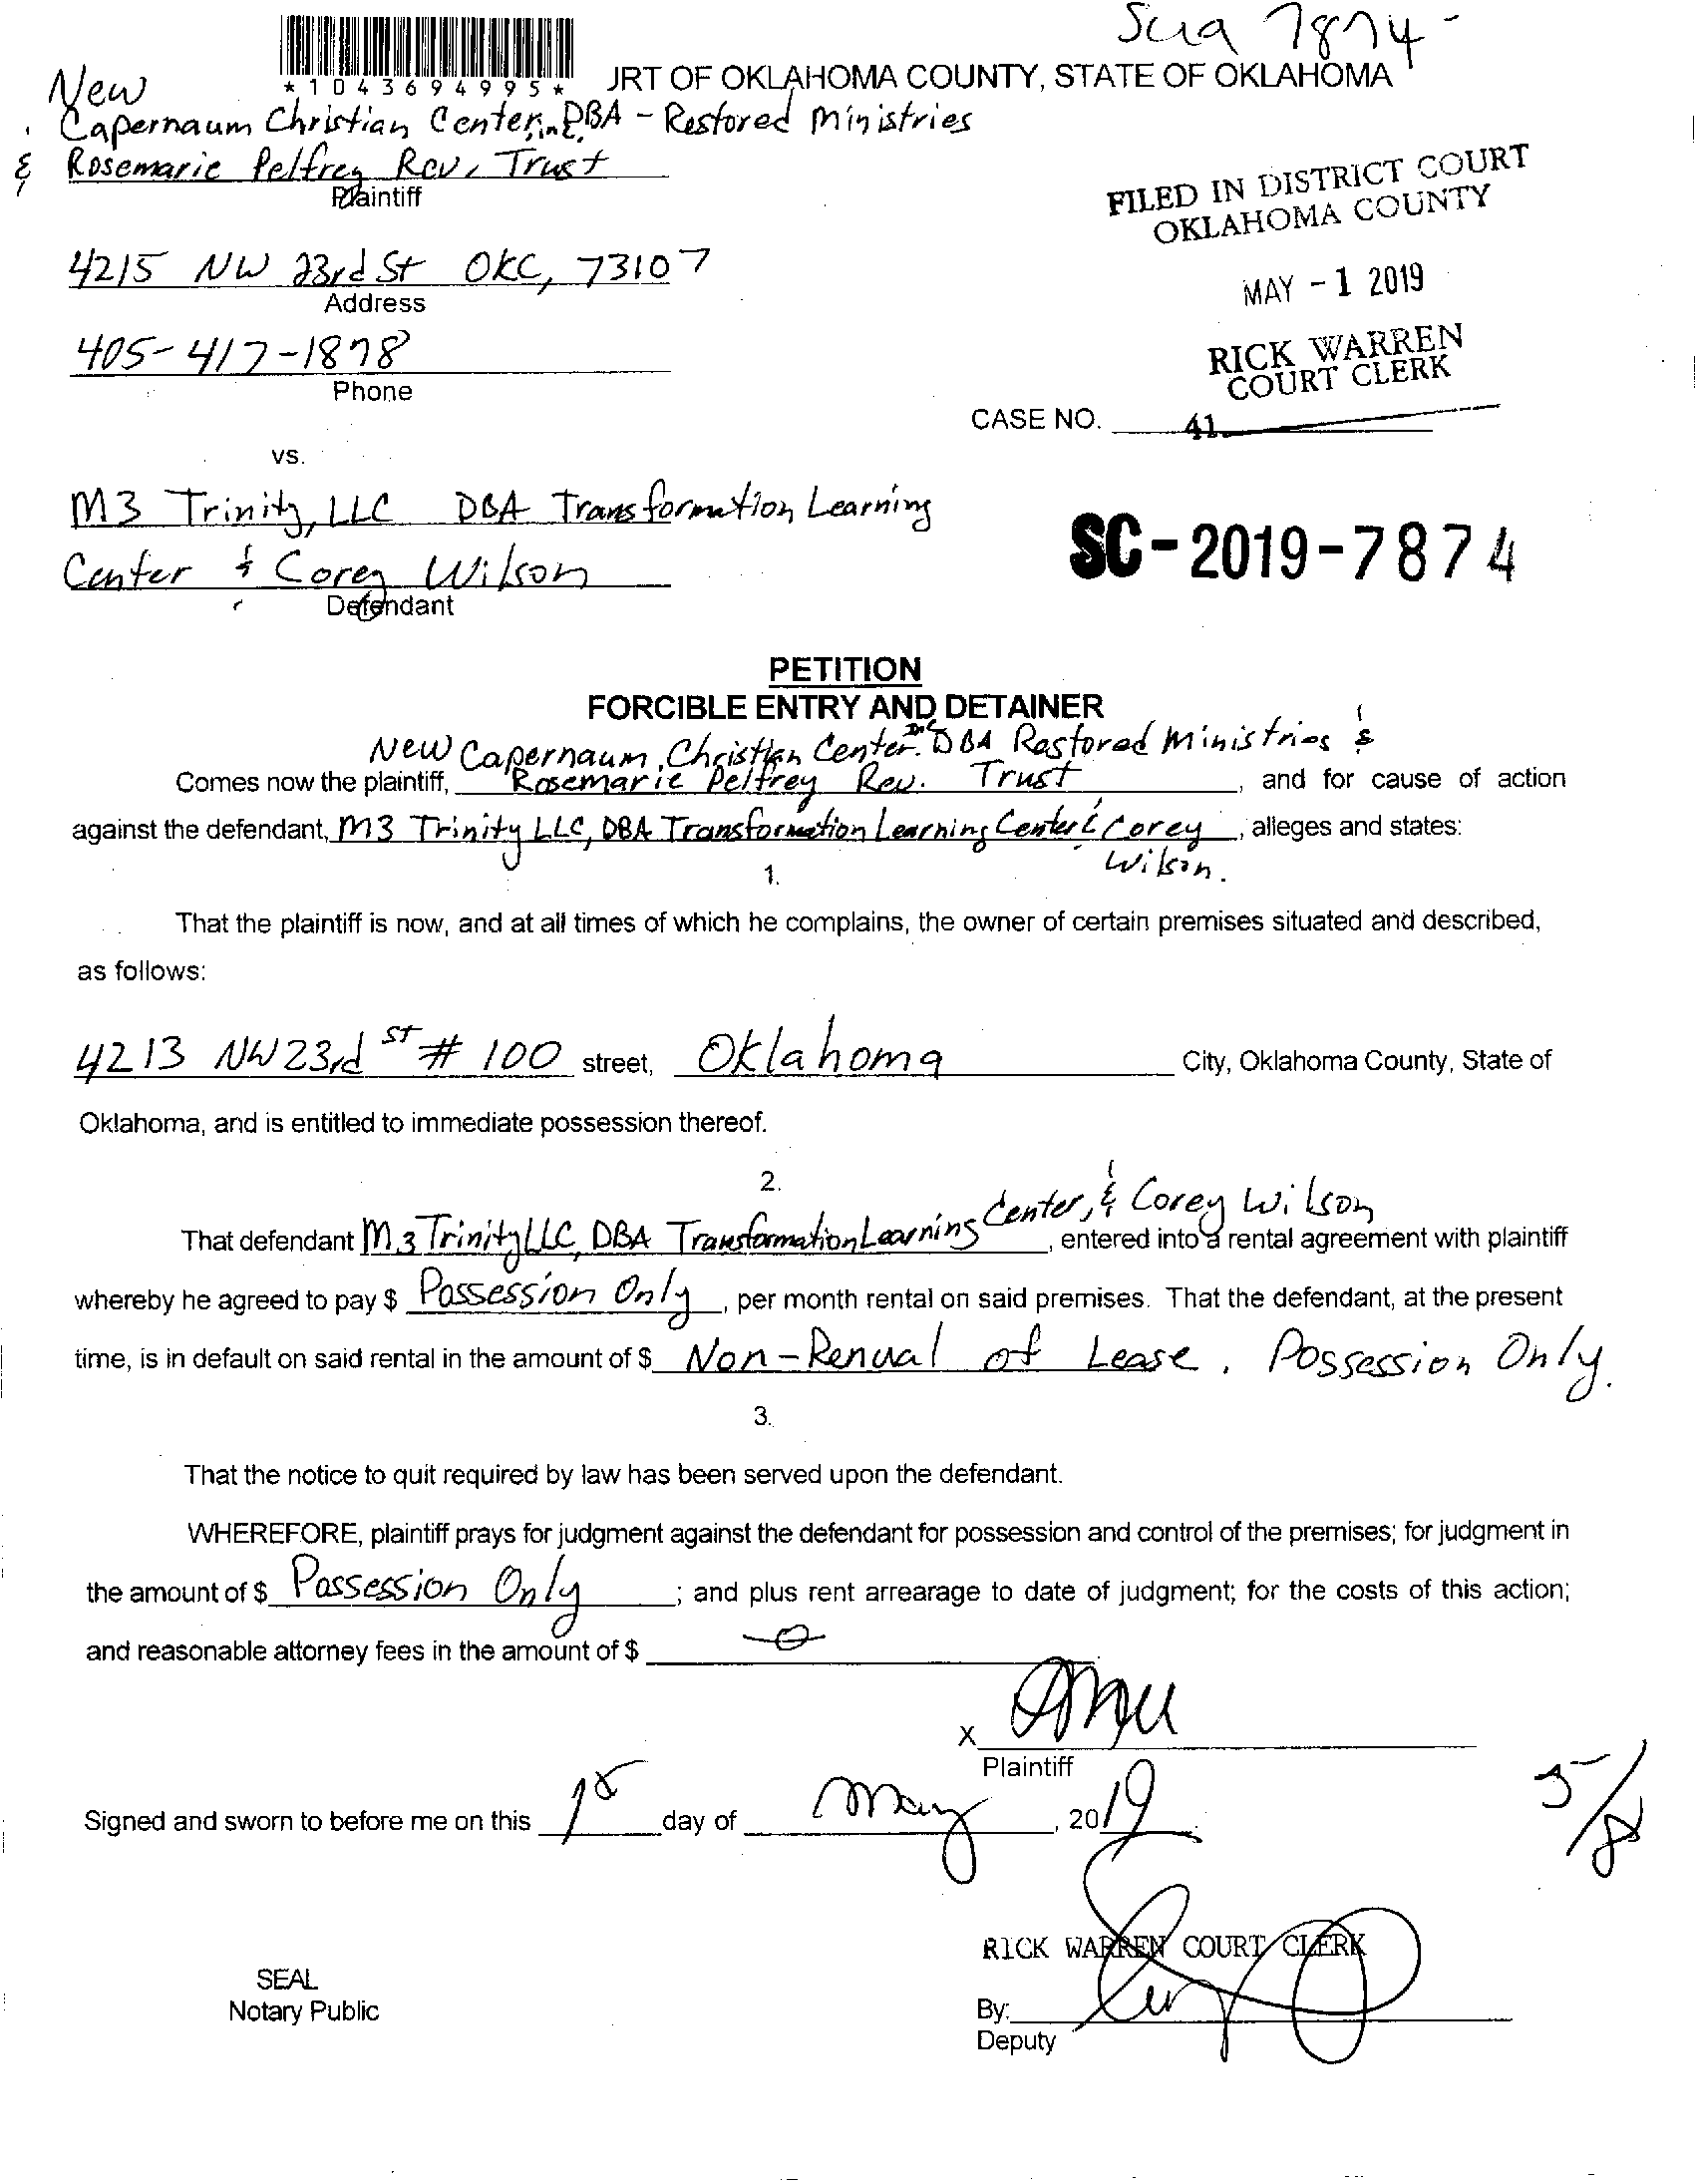 * 1 0 4 3 6 9 4 9 9 5 *
JRT OF OKLAHOMA COUNTY, STATE OF OKLAHOMA
7874
New
Capernaum Christian Center, Inc. DBA - Restored Ministries
& Rosemarie Pelfrey Rev. Trust
Plaintiff
FILED IN DISTRICT COURT
OKLAHOMA COUNTY
4215 NW 23rd St OKC, 73107
Address
MAY - 1 2019
405-417-1878
Phone
RICK WARREN
COURT CLERK
CASE NO.
41
vs.
M3 Trinity, LLC DBA Transformation Learning
Center & Corey Wilson
Defendant
SC-2019-7874
PETITION
FORCIBLE ENTRY AND DETAINER
New Capernaum Christian Center Inc DBA Restored Ministries &
Comes now the plaintiff, Rosemarie Pelfrey Rev. Trust, and for cause of action
against the defendant, M3 Trinity LLC, DBA Transformation Learning Center & Corey, alleges and states:
Wilson.
1.
That the plaintiff is now, and at all times of which he complains, the owner of certain premises situated and described,
as follows:
4213 NW 23rd ST # 100 street, Oklahoma City, Oklahoma County, State of
Oklahoma, and is entitled to immediate possession thereof.
2.
Center, & Corey Wilson
That defendant M3 Trinity LLC, DBA Transformation Learning, entered into a rental agreement with plaintiff
whereby he agreed to pay $ Possession Only, per month rental on said premises. That the defendant, at the present
time, is in default on said rental in the amount of $ Non-Renual of Lease. Possession Only.
3.
That the notice to quit required by law has been served upon the defendant.
WHEREFORE, plaintiff prays for judgment against the defendant for possession and control of the premises; for judgment in
the amount of $ Possession Only; and plus rent arrearage to date of judgment; for the costs of this action;
and reasonable attorney fees in the amount of $ 0
X
Plaintiff
Signed and sworn to before me on this 1st day of May, 2019
5/8
RICK WARREN COURT CLERK
SEAL
Notary Public
By:
Deputy